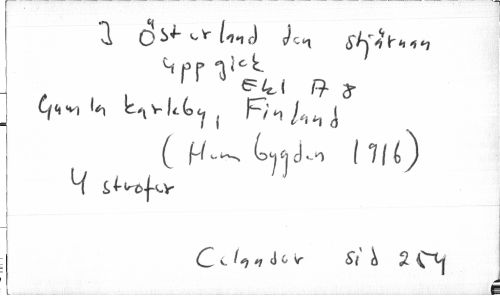 I Österland den stjärnan
uppgick
Ekl A 8
Gamla Karleby, Finland
(Hembygden 1916)
4 strofer
Celander sid 254